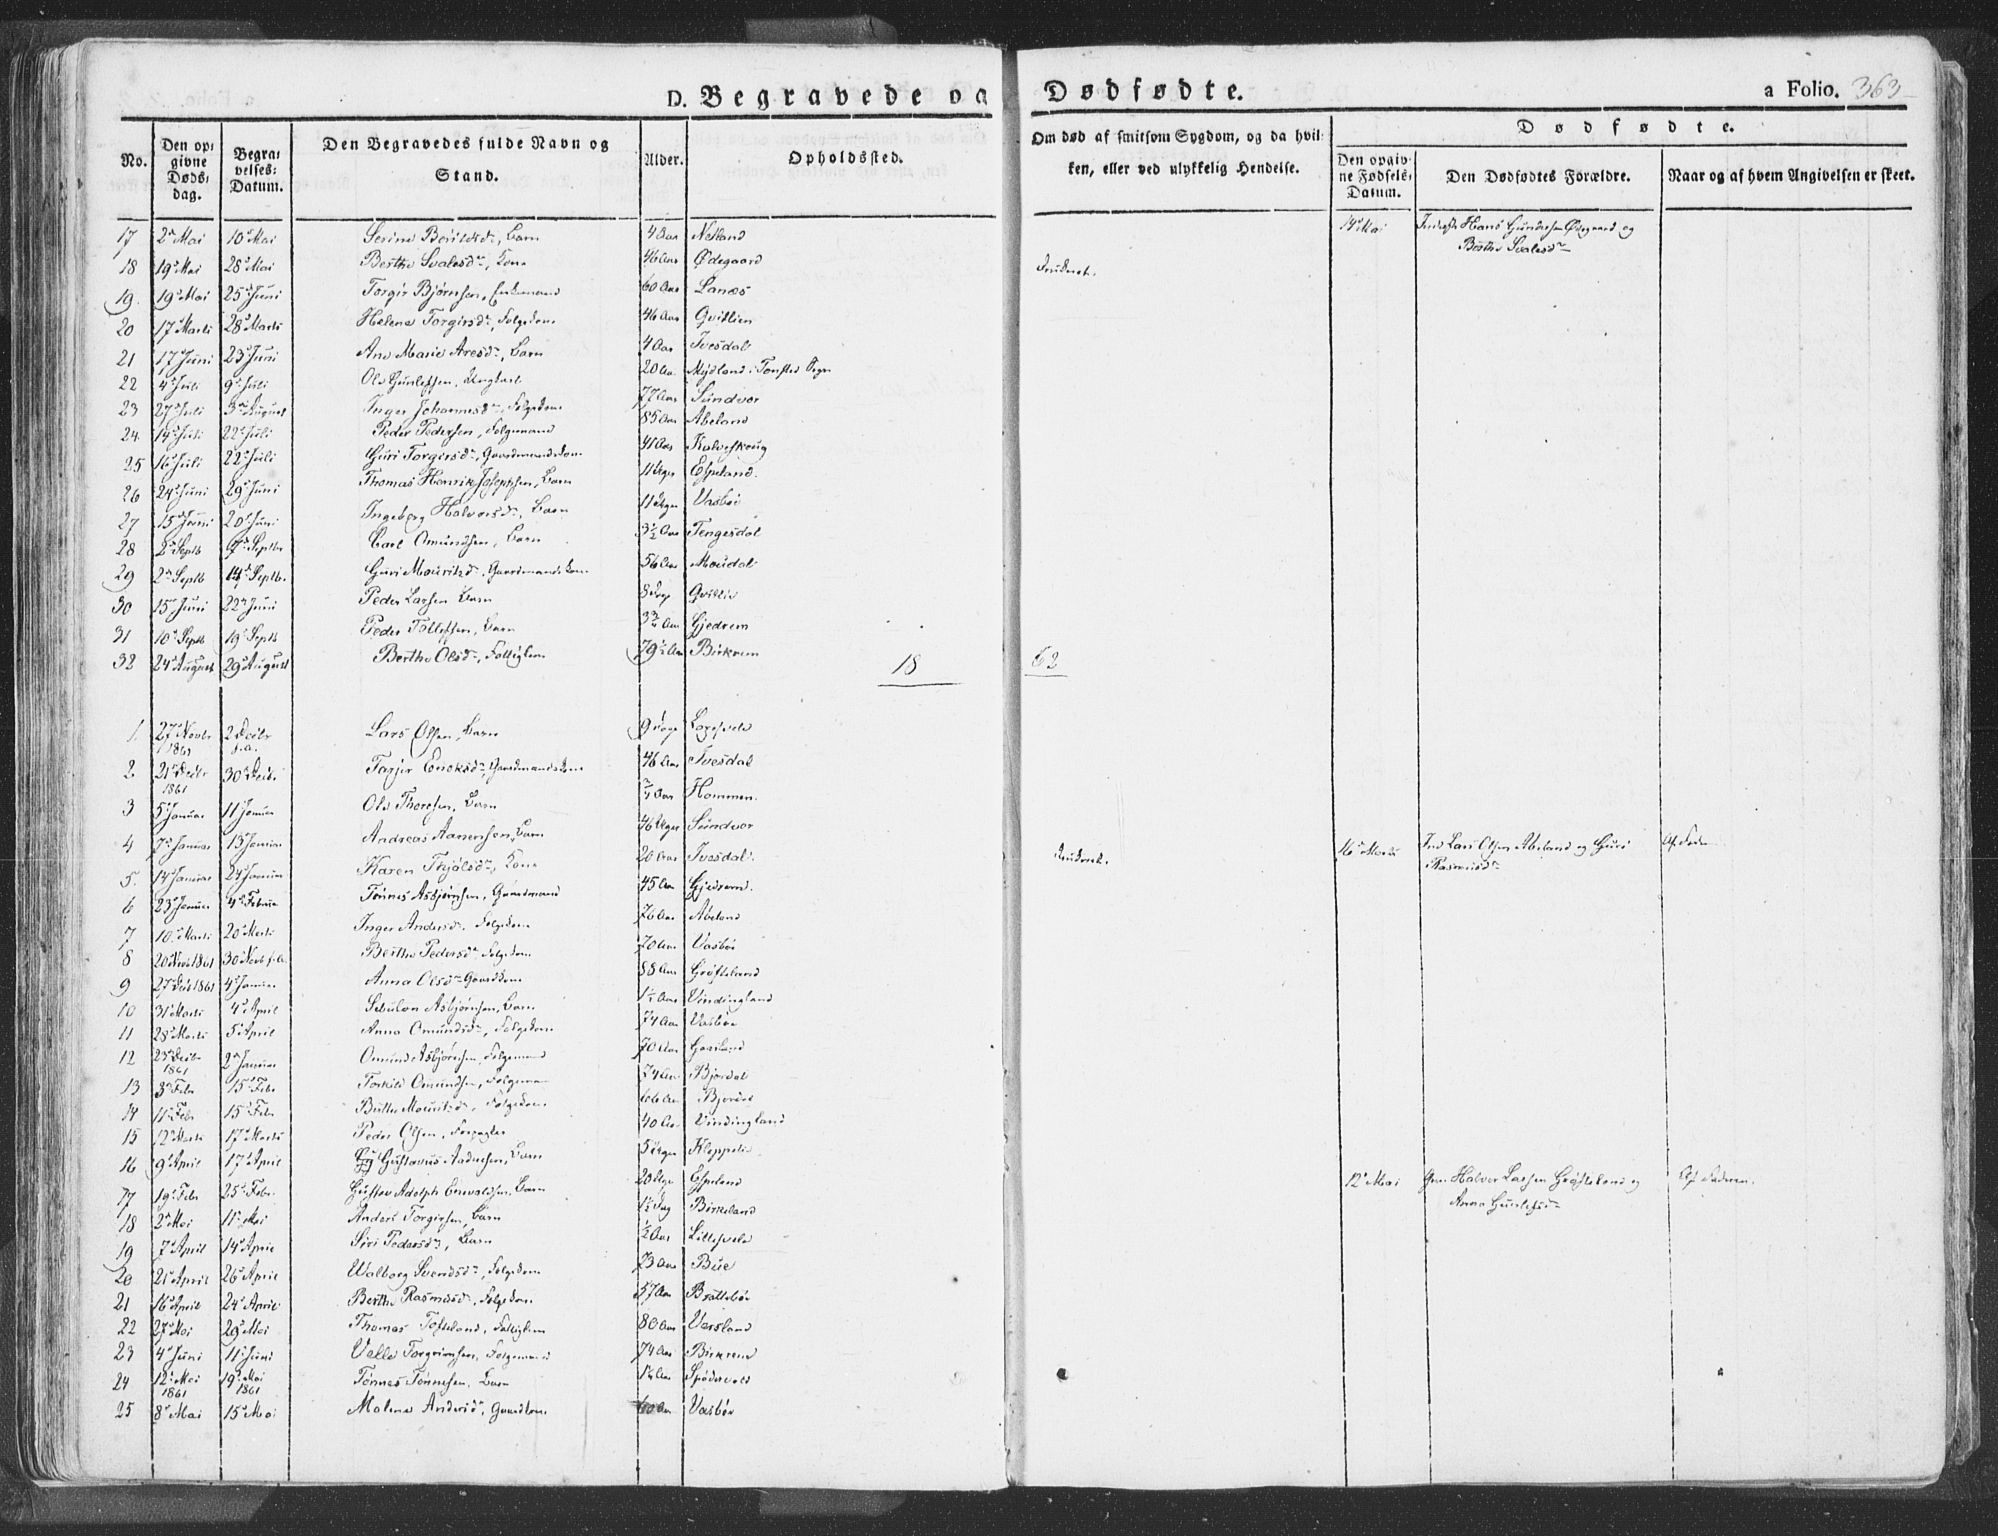 D. Begravede og Dødfødte. a Folio. 363
No. Den opgivne Døds-dag. Begravelses-Datum. Den Begravedes fulde Navn og Stand. Alder. Opholdssted. Om død af smitsom Sygdom, og da hvilken, eller ved ulykkelig Hendelse. Dødfødte.
Den opgivne Fødsels-Datum. Den Dødfødtes Forældre. Naar og af hvem Angivelsen er skeet.
17 2 Mai 10 Mai Serine Bertilsd., Barn 4 Aar Netland 14 Mai Hans Gundersen Ødegaard og
Berthe Svalesd.
18 19 Mai 28 Mai Berthe Svalesd., Kone 46 Aar Ødegaard
19. 19 Mai 25 Juni Torgir Bjørnsen, Enkemand 60 Aar Lanes
20 17 Marts 28 Marts Helene Torgirsd., Folgekone 46 Aar Qvitlien
21 17 Juni 23 Juni Ane Marie Aresd., Barn 4 Aar Ivesdal
22 4 Juli 9 Juli Ole Gunlefsen, Ungkarl 20 Aar Mydland i Tonsted Sogn
23 27 Juli 3 August Inger Johannesd., Folgekone 77 Aar Sundvor
24. 14 Juli 22 Juli Peder Pedersen, Folgemand 85 Aar Abeland
25 16 Juli 22 Juli Guri Torgirsd., Gaardmandskone 41 Aar
26 24 Juni 29 Juni Thomas Henrik Josephsen, Barn 11 Uger Espeland.
27 15 Juni 20 Juni Ingeborg Halvorsd., Barn 11 Uger Vasbø
28 2 Septb 7 Septbr Carl Omundsen, Barn 3½ Aar Tengesdal
29 2 Septb 14 Septb. Guri Mauritsd., Gaardmandskone 56 Aar Moudal
30 15 Juni 22 Juni Peder Larsen Barn 8 Dage Qvitlie
31 10 Septb 19 Septb Peder Tollefsen, Barn 3¾ Aar Gjedrem
32 24 August 29 August Berthe Olsd., Fattiglem 79½ Aar Birkrem
18 62
1. 27 Novbr 1861 2 Decbr f.a. Lars Olsen, Barn 9 Dage
2 21 Decbr 1861 30 Decbr Enoksd., Gaardmandskone 46 Aar Ivesdal
3 5 Januar 11 Januar Ole Thoresen, Barn ¾ Aar Hommen.
4 7 Januar 13 Januar Andreas Aanensen, Barn 36 Uger Sundvor 16 Marts Lars Olsen Abeland og Guri Af Faderen
Rasmusd.
5. 14 Januar 24 Januar Karen Thjølsd., Kone 20 Aar Ivesdal.
6 23 Januar 4 Februar Tønnes Asbjørnsen, Gaardmand 45 Aar Gjedrem.
7 10 Marts 20 Marts Inger Andersd. Folgekone 76 Aar Abeland
8 20 Novb 1861 30 Novb f.a. Berthe Pedersd., Folgekone 70 Aar Vasbø
9 27 Decb 1861 4 Januar Anna Olsd. Gaardkone 88 Aar Grøfteland
10 31 Marts 4 April Sebulon Asbjørnsen, Barn 1½ Aar Vindingland
11 28 Marts 5 April Anna Omundsd., Folgekone 74 Aar Vasbø
12 23 Decbr 1861 2 Januar Omund Asbjørnsen, Folgemand 70 Aar
13 3 Febr 15 Febr Torkild Omundsen, Folgemand 74 Aar Bjordal
14 11 Febr 15 Febr Berthe Mauritsd., Folgekone 66 Aar Bjordal
15 12 Marts 17 Marts Peder Olsen, Forpagter 40 Aar Vindingland
16 9 April 17 April Gustavus Aadnesen, Barn 5 Uger Kleppelie
17 19 Febr 25 Febr. Gustav Adolph Enevaldsen, Barn 20 Uger Espeland 12 Mai Halvor Larsen Grøfteland og Af Faderen.
Anna Gunlefsd.
18 2 Mai 11 Mai Anders Torgirsen, Barn 1½ Dag Birkeland
19 7 April 14 April Siri Pedersd., Barn ½ Aar
20 21 April 26 April Walborg Svendsd., Folgekone 73 Aar Bue
21 16 April 24 April Berthe Rasmusd., Folgekone 57 Aar Brattebø
22 27 Mai 29 Mai Thomas Tofteland, Fattiglem 80 Aar Versland
23 4 Juni 11 Juni Valle Torgrimsen, Folgemand 74 Aar Birkrem
24 12 Mai 1861 19 Mai 1861 Tønnes Tønnesen, Barn 1½ Aar
25 8 Mai 15 Mai Malene Andersd., Gaardkone 60 Aar Vasbø